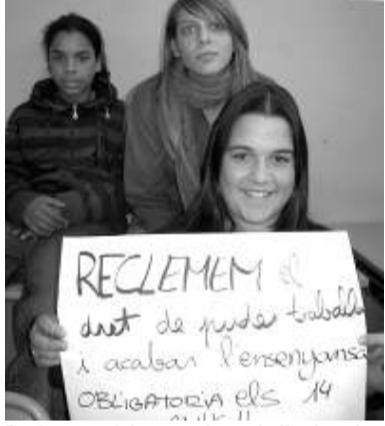 RECLEMEM el
dret de puder traballar
i acabar l'ensenyansa
OBLIGATORIA els 14